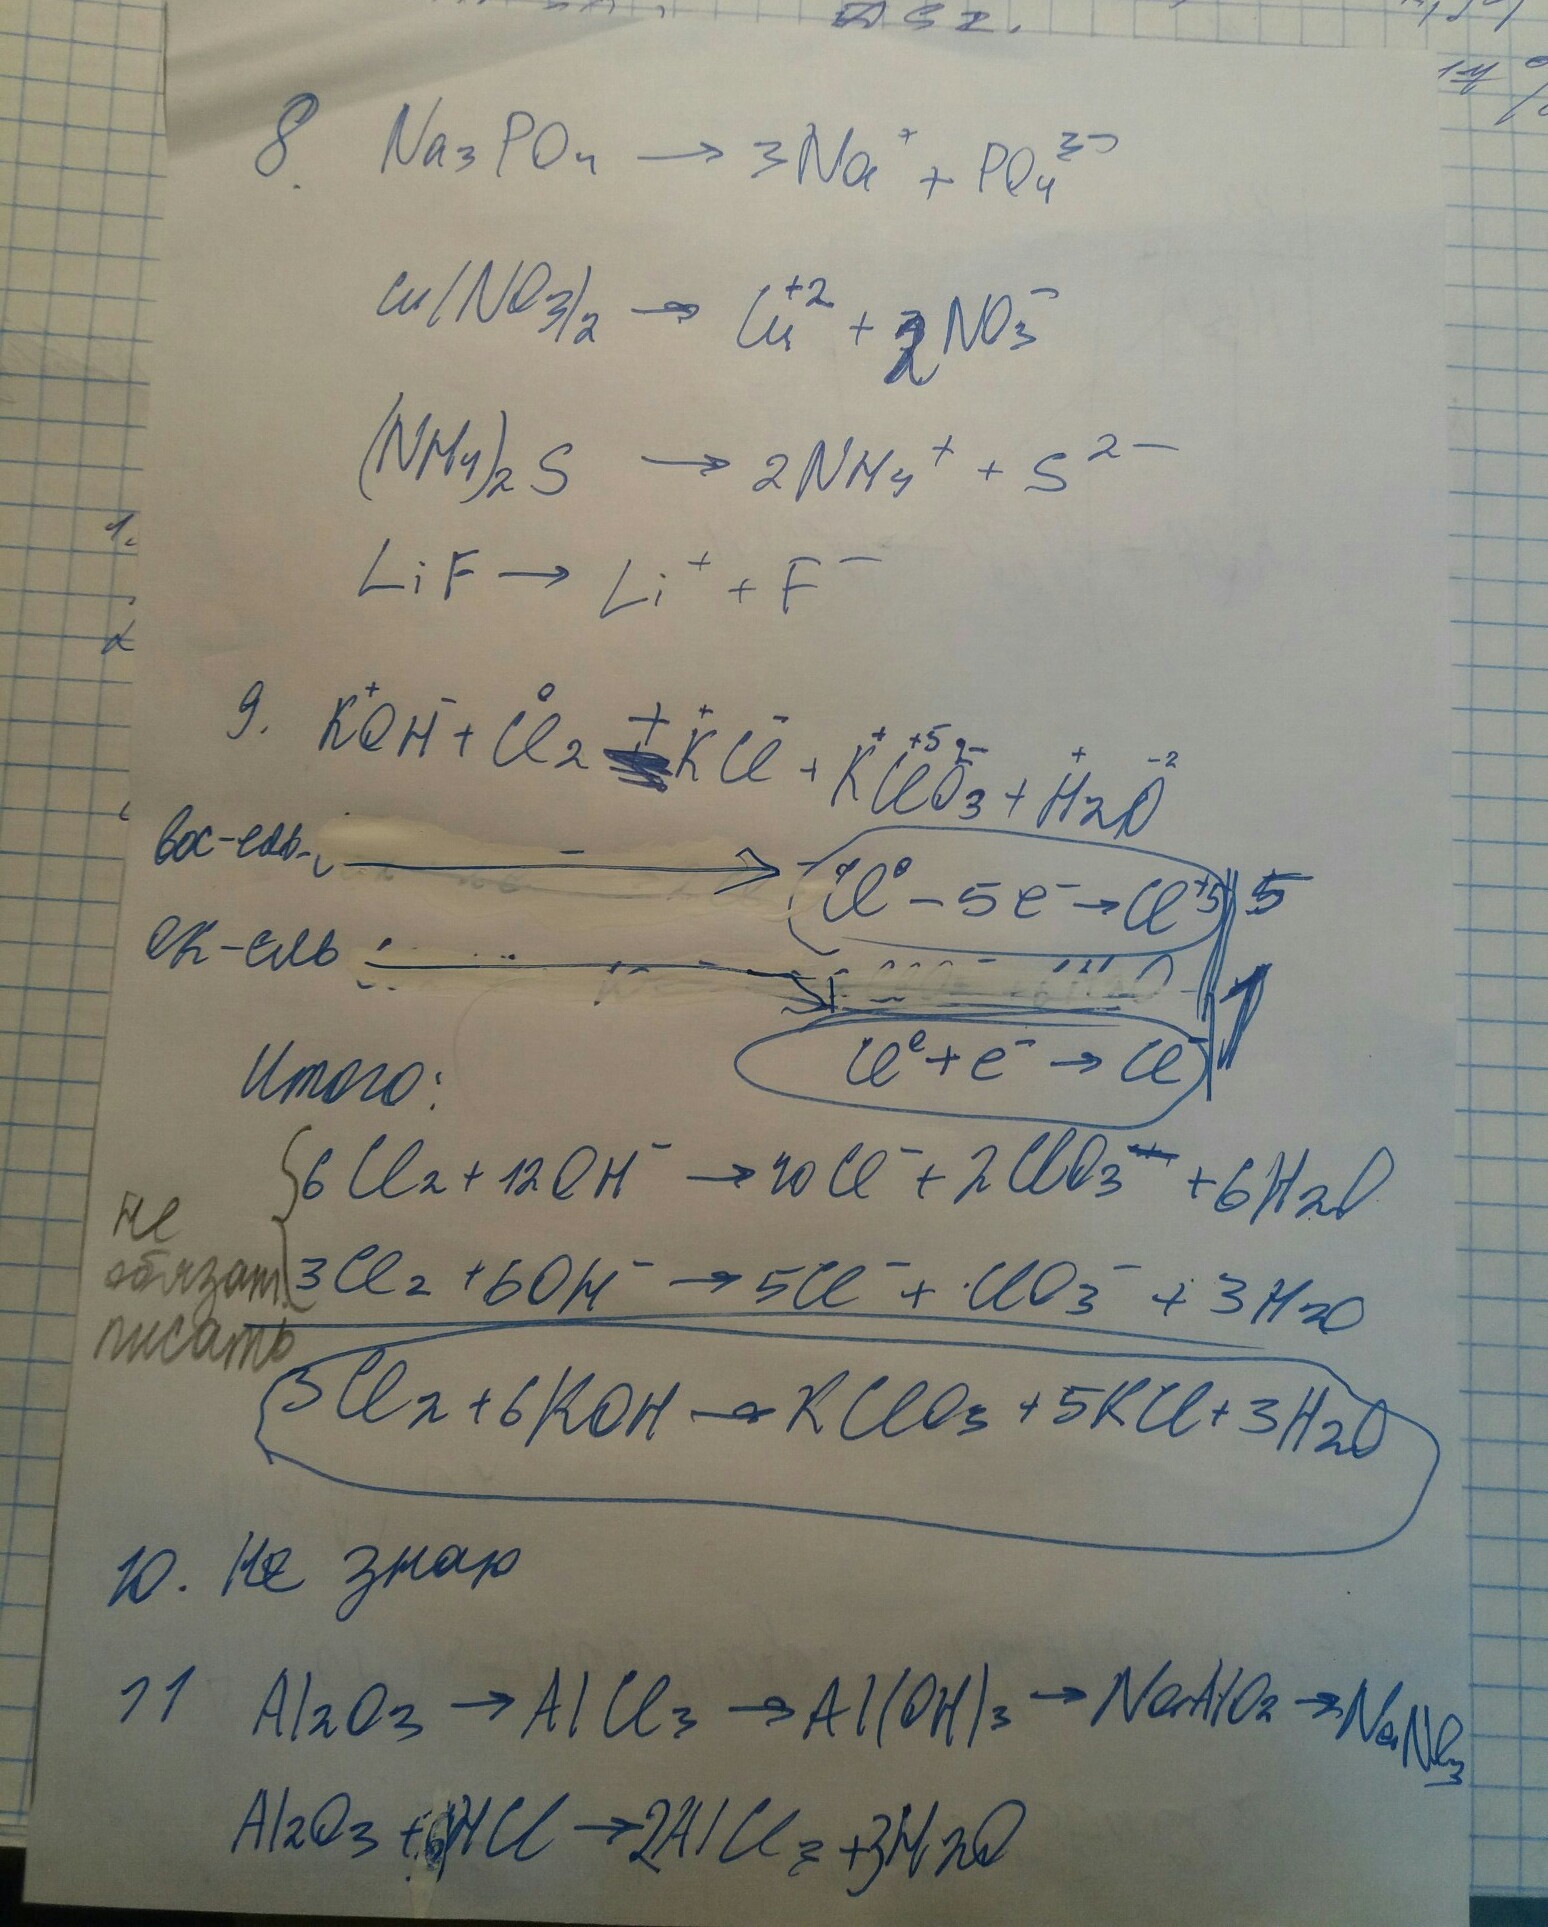 8. Na₃PO₄ → 3Na⁺ + PO₄³⁻
Cu(NO₃)₂ → Cu⁺² + 2NO₃⁻
(NH₄)₂S → 2NH₄⁺ + S²⁻
LiF → Li⁺ + F⁻
9. K⁺OH⁻ + Cl₂⁰ → K⁺Cl⁻ + K⁺Cl⁺⁵O₃²⁻ + H₂⁺O⁻²
вос-ель Cl⁰ – 5e⁻ → Cl⁺⁵ 5
ок-ель
Cl⁰ + e⁻ → Cl⁻ 1
Итого:
6Cl₂ + 12OH⁻ → 10Cl⁻ + 2ClO₃⁻ + 6H₂O
не обязат. писать
3Cl₂ + 6OH⁻ → 5Cl⁻ + ClO₃⁻ + 3H₂O
3Cl₂ + 6KOH → KClO₃ + 5KCl + 3H₂O
10. Не знаю
11 Al₂O₃ → AlCl₃ → Al(OH)₃ → NaAlO₂ → NaNO₃
Al₂O₃ + 6HCl → 2AlCl₃ + 3H₂O